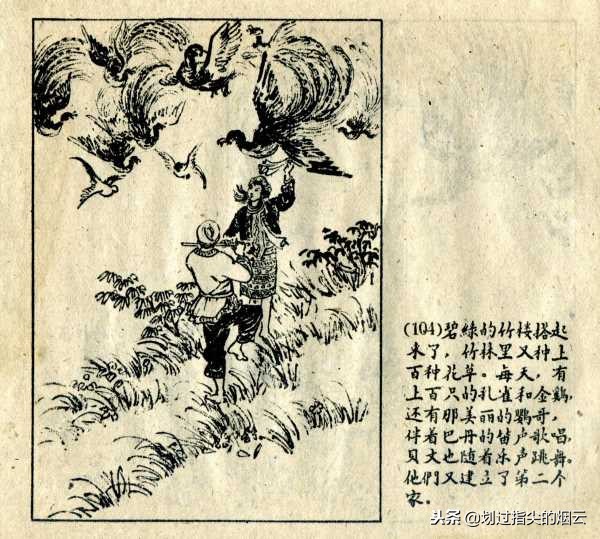 (104)碧綠的竹楼搭起
来了，竹林里又种上
百种花草。每天，有
上百只的孔雀和金鷄，
还有那美丽的鸚哥，
伴着巴丹的笛声歌唱，
贝文也随着乐声跳舞。
他們又建立了第二个
家。
头条@划过指尖的烟云